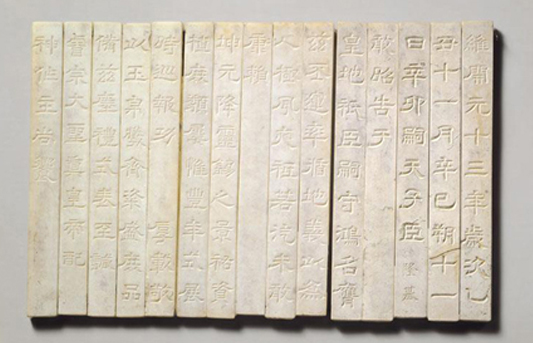 維開元十三年歲次乙
丑十一月辛巳朔十一
日辛卯嗣天子臣隆基
敢昭告于
皇地祇臣嗣守鴻名膺
茲丕運率循地義以為
人極夙夜祗若汔未敢
康賴
坤元降靈錫之景祐資
植庶類屢惟豐年式展
時巡報功厚載敬
以玉帛犧齊粢盛庶品
備茲瘞禮式表至誠
睿宗大聖真皇帝配
神作主尚饗